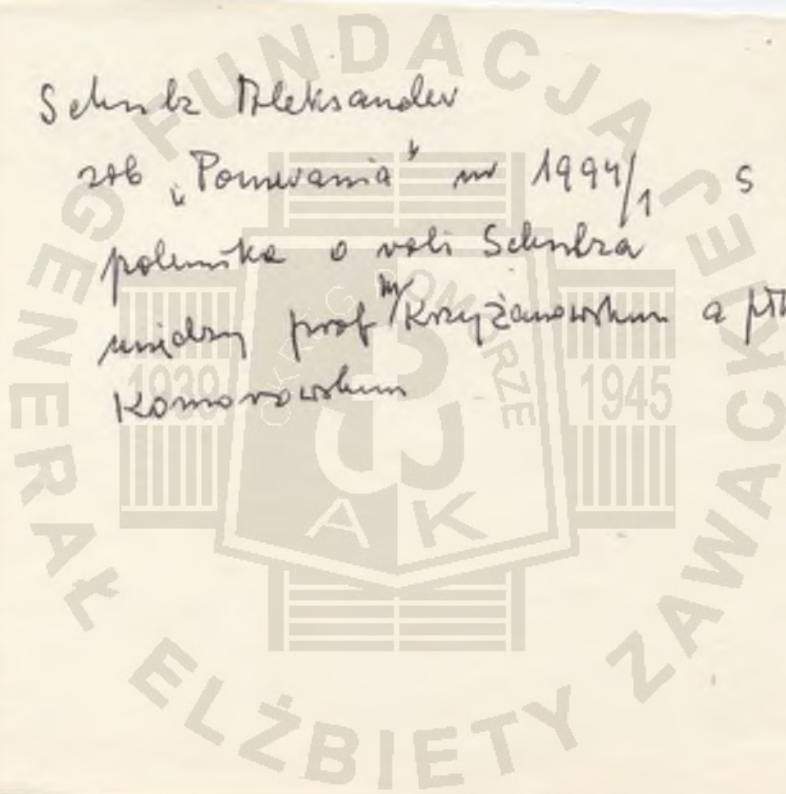 Schulz Aleksander
zob „Pomerania" nr 1994/1 S
polemika o roli Schulza
między prof Krzyżanowskim a płk
Komorowskim
FUNDACJA
GENERAŁ ELŻBIETY ZAWACKIEJ
OKRĘG POMORZE
1939 1945
AK